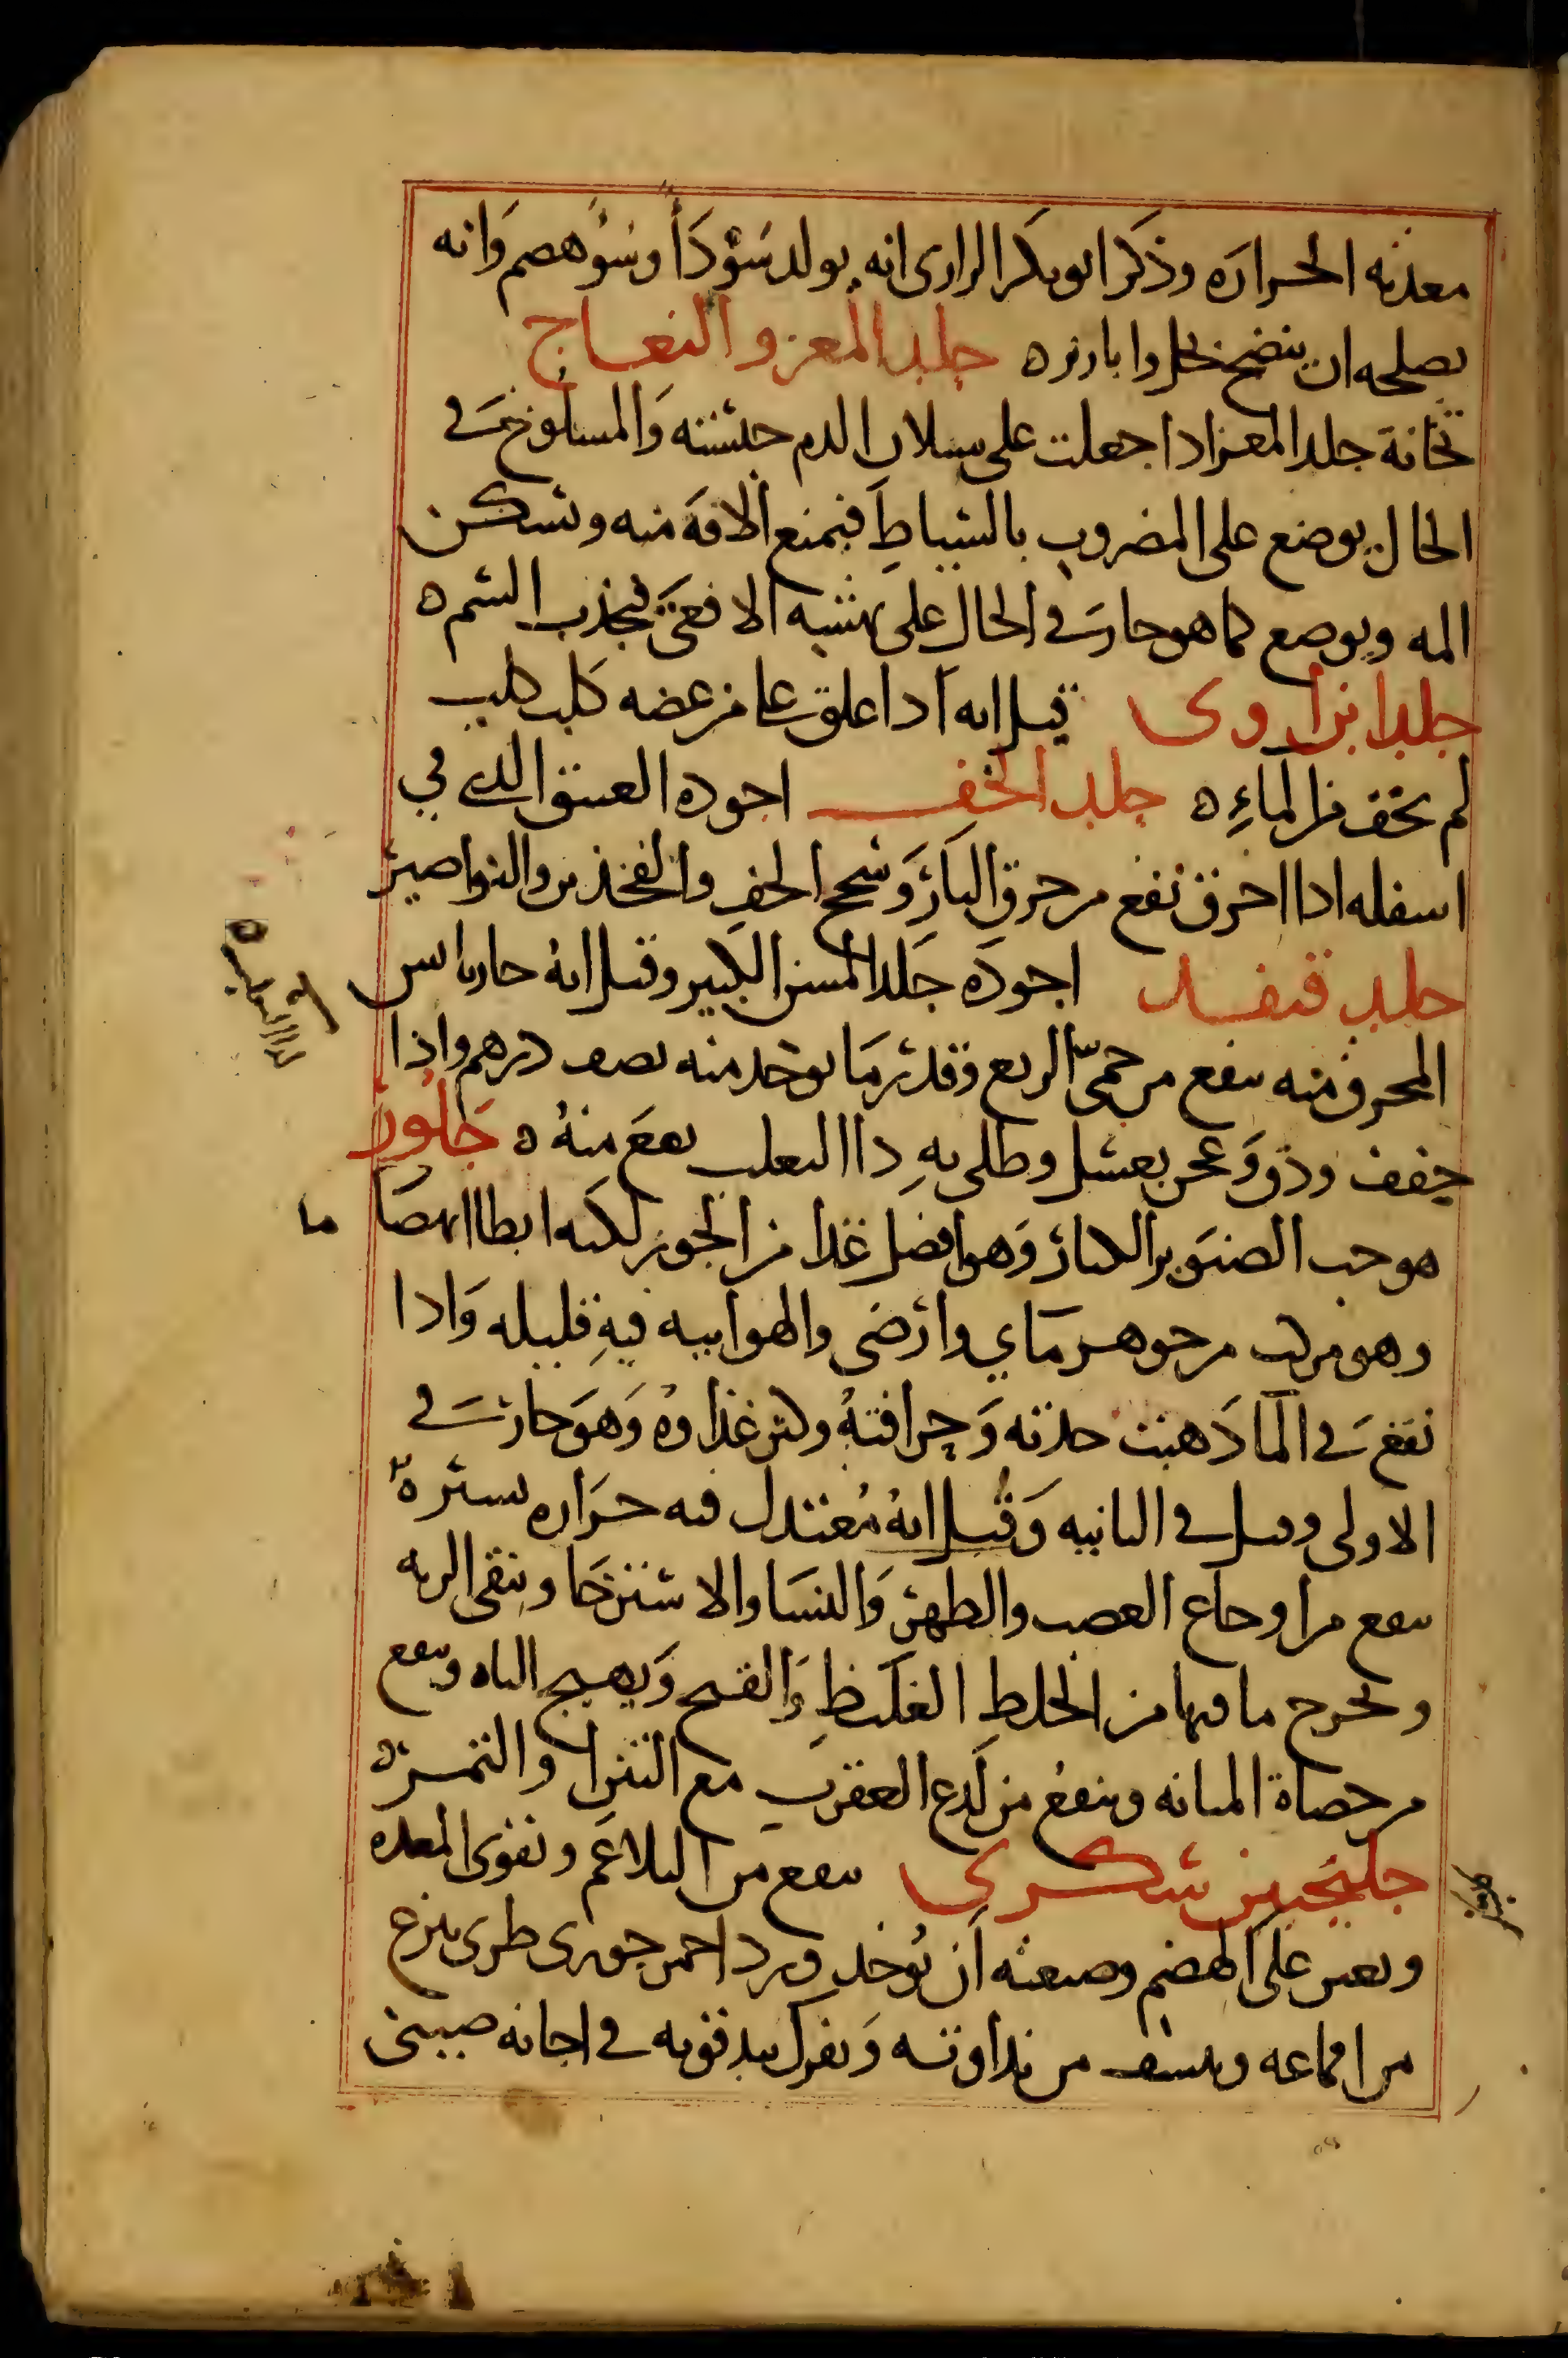 معدته الحراره وذكر ابو بكر الرازى انه يولد سوْدَأ وسُوْهضم وَانه
يصلحه ان ينضج بخل وابازره جلد المعز والنعاج
نحانة جلد المعز اذا جعلت على سيلان الدم حبسته وَالمسلوخ فى
الحال يوضع على المضروب بالسياطِ فيمنع الافة منه وتسكن
المه ويوضع كما هو حار فى الحال على نهشة الافعى يجذب السم ه
جلد ابن اوى قيل انه اذا علق على من عضه كلب كلب
لم يخف من المآءِ ه جلد الخف اجوده العتيق الذى فى
اسفله اذا احرق نفع من حرق النار وَسحج الخف والفخذين والنواصير
جلد قنفد اجوده جَلد المسن الكبير وقيل انهُ حار يابس
المحرق منه ينفع من حمىّ الربع وقدر مَا يوخد منه نصف درهم واذا
جفف ودق وَعجن بعسل وطلى بهِ دا الثعلب نفعَ منهُ ه جَلوز
هو حب الصنوبر الكبار وَهو افضل غذا من الجوز لكنه ابطا انهضَا ما
وهو مركب من جوهر مَاي وارْضى والهواييه فيهِ قليله وَاذا
نقع فى المآ ذهبت حدته وَحرافتهُ وكثر غذاوهُ وَهوَ حار فى
الاولى وقيل فى الثانيه وَقيل انهُ مُعتدل فيه حرَاره يسيره
ينفع من اوجاع العصب والظهر وَالنسَا والاسترخَا وينقى الريه
ويخرج ما فيها من الخلطِ الغلَيظِ وَالقيح وَيهيج الباه وينفع
من حصاة المثانه وينفعُ من لَدغ العقرب مع التين والتمره
جلنجبين سكرى ينفع من البلاغم ويقوى المعده
ويعين على الهضم وصنعته اَن يُوخد ورد احمر جورى طرى ينزع
من اقماعه وينشف من نداوته وَيفرك بيد قويه فى اجانه صينى